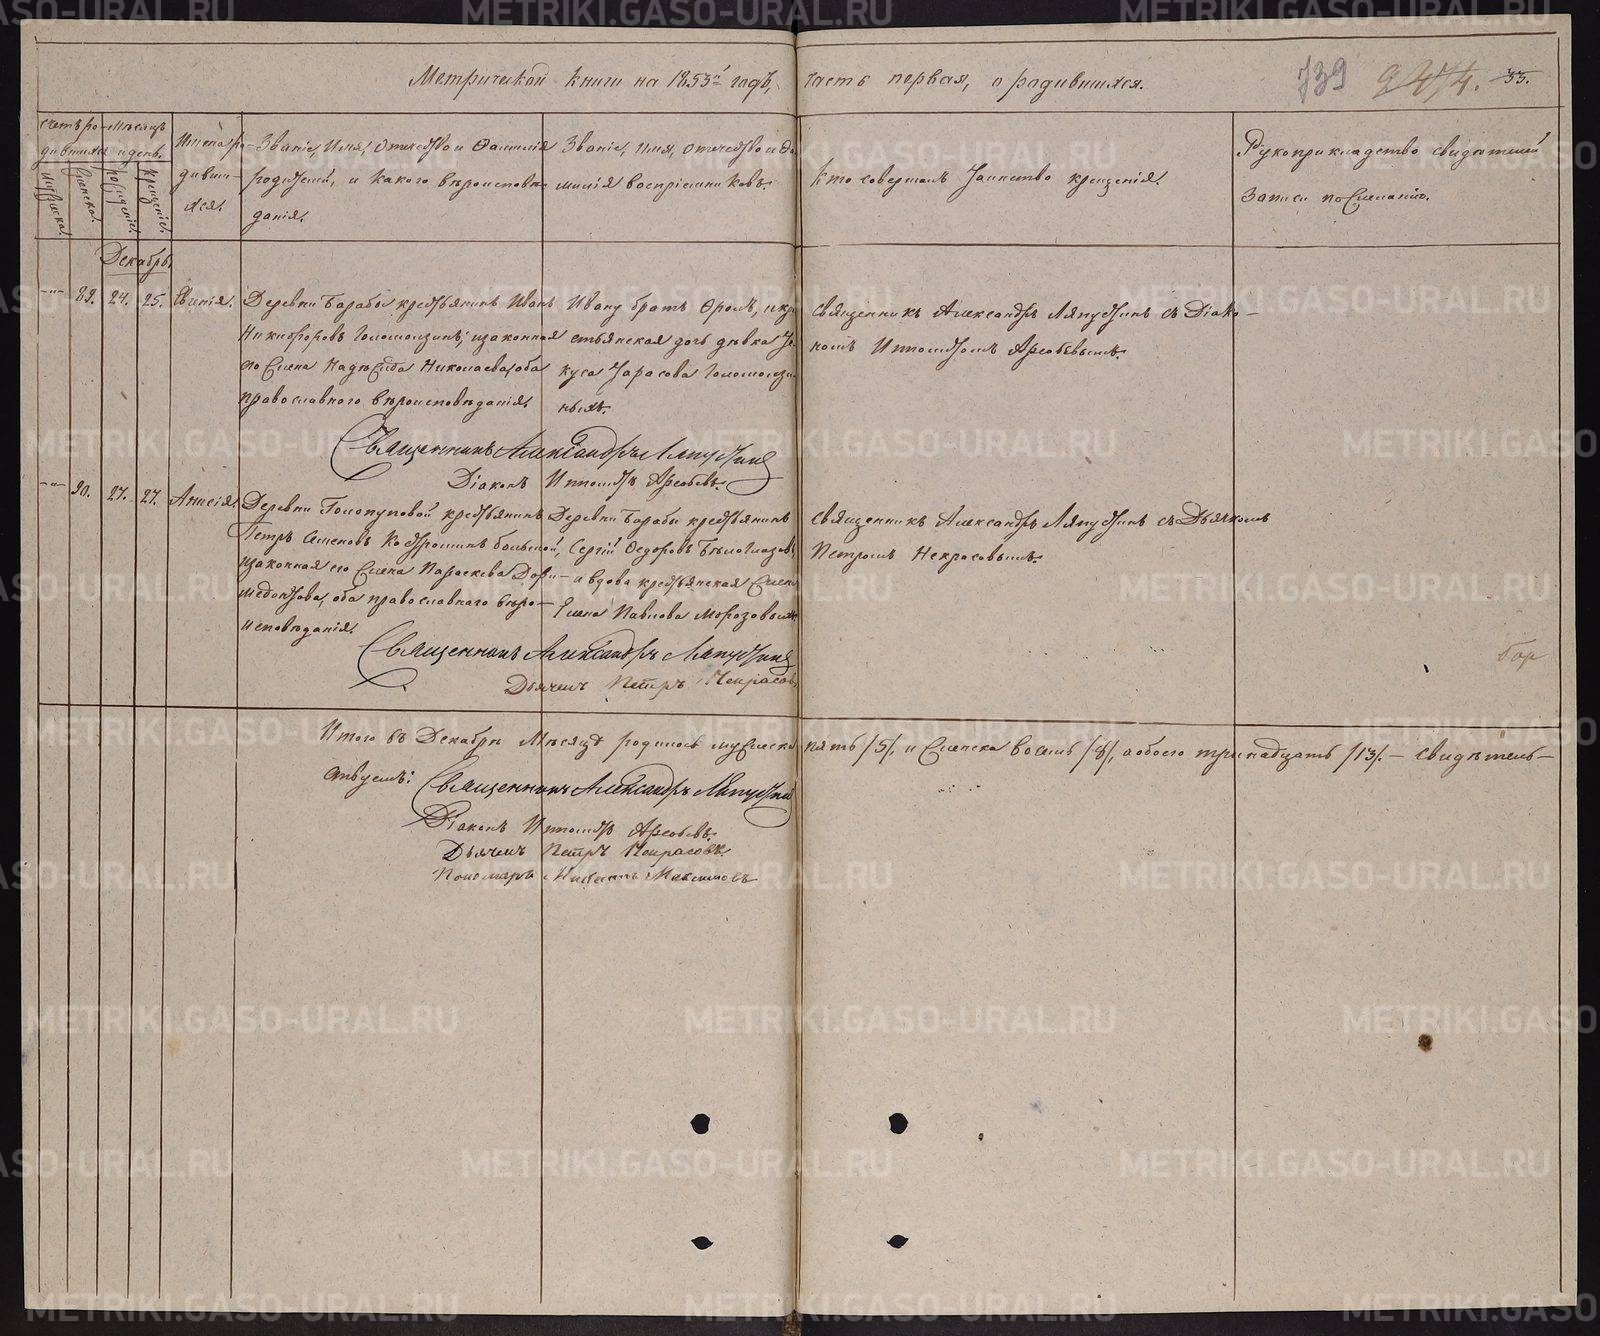 Метрической книги на 1853й годъ, часть первая, о родившихся.
739
55.
Счетъ ро-
дившихся
Мѣсяцъ
и день.
Мужеска.
Женска.
рожденія.
крещенія.
Имена ро-
дивши-
хся.
Званіе, Имя, Отчество и Фамилія
родителей, и какого вѣроисповѣ-
данія.
Званіе, имя, отчество и Фа-
милія воспріемниковъ.
Кто совершалъ Таинство крещенія.
Рукоприкладство свидѣтелей
записи по желанію.
Декабрь
89. 24. 25. Евгенія.
Деревни Барабы крестьянинъ Иванъ
Никифоровъ Голомолзинъ, и законная
его жена Надежда Николаева, оба
православнаго вѣроисповѣданія.
Ивану братъ Фролъ, и кре-
стьянская дочь дѣвка
Тарасова Голомолзи-
ныхъ.
Священникъ Александръ Ляпустинъ съ Діако-
номъ Ипполитомъ Арефьевымъ.
Священникъ Александръ Ляпустинъ
Діаконъ Ипполитъ Арефьевъ.
90. 27. 27. Анисія.
Деревни Голопуповой крестьянинъ
Петръ Семеновъ Костроминъ большой,
и законная его жена Параскева Дори-
медонтова, оба православнаго вѣро-
исповѣданія.
Деревни Барабы крестьянинъ
Сергій Ѳедоровъ Бѣлоглазовъ,
и вдова крестьянская жена
Елена Павлова Морозовыхъ
Священникъ Александръ Ляпустинъ съ Дьячкомъ
Петромъ Некрасовымъ.
Священникъ Александръ Ляпустинъ
Дьячекъ Петръ Некрасовъ
Итого въ Декабрѣ Мѣсяцѣ родилось мужеска пять /5/, и женска восемь /8/, а обоего тринадцать /13/. — свидѣтель-
ствуемъ:
Священникъ Александръ Ляпустинъ
Діаконъ Ипполитъ Арефьевъ.
Дьячекъ Петръ Некрасовъ.
Пономарь Никита Максимовъ
METRIKI.GASO-URAL.RU